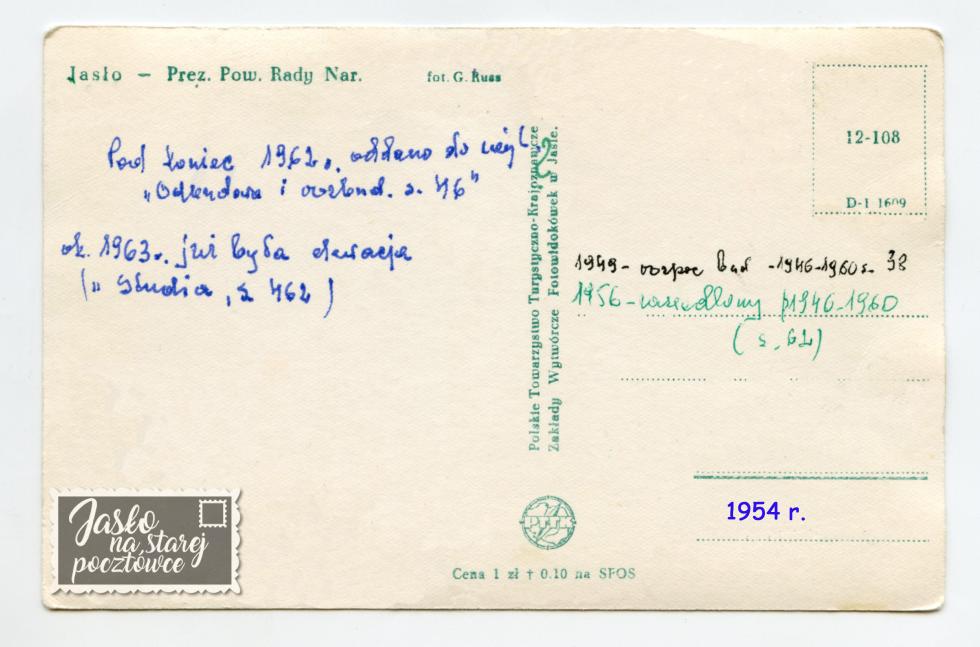 Jasło – Prez. Pow. Rady Nar.
fot. G. Russ
Pod koniec 1962 r. oddano do
"Odbudowa i rozbud. s. 46"
ok. 1963 r. już była elewacja
(" Studia, s 462 )
Polskie Towarzystwo Turystyczno-Krajoznawcze
Zakłady Wytwórcze Fotowidokówek w Jaśle.
12-108
D-1 1609
1949 - rozpoc bud - 1946-1960 s. 38
1956 - 1946-1960
(s. 62)
1954 r.
PTTK
Cena 1 zł + 0.10 na SFOS
Jasło
na starej
pocztówce